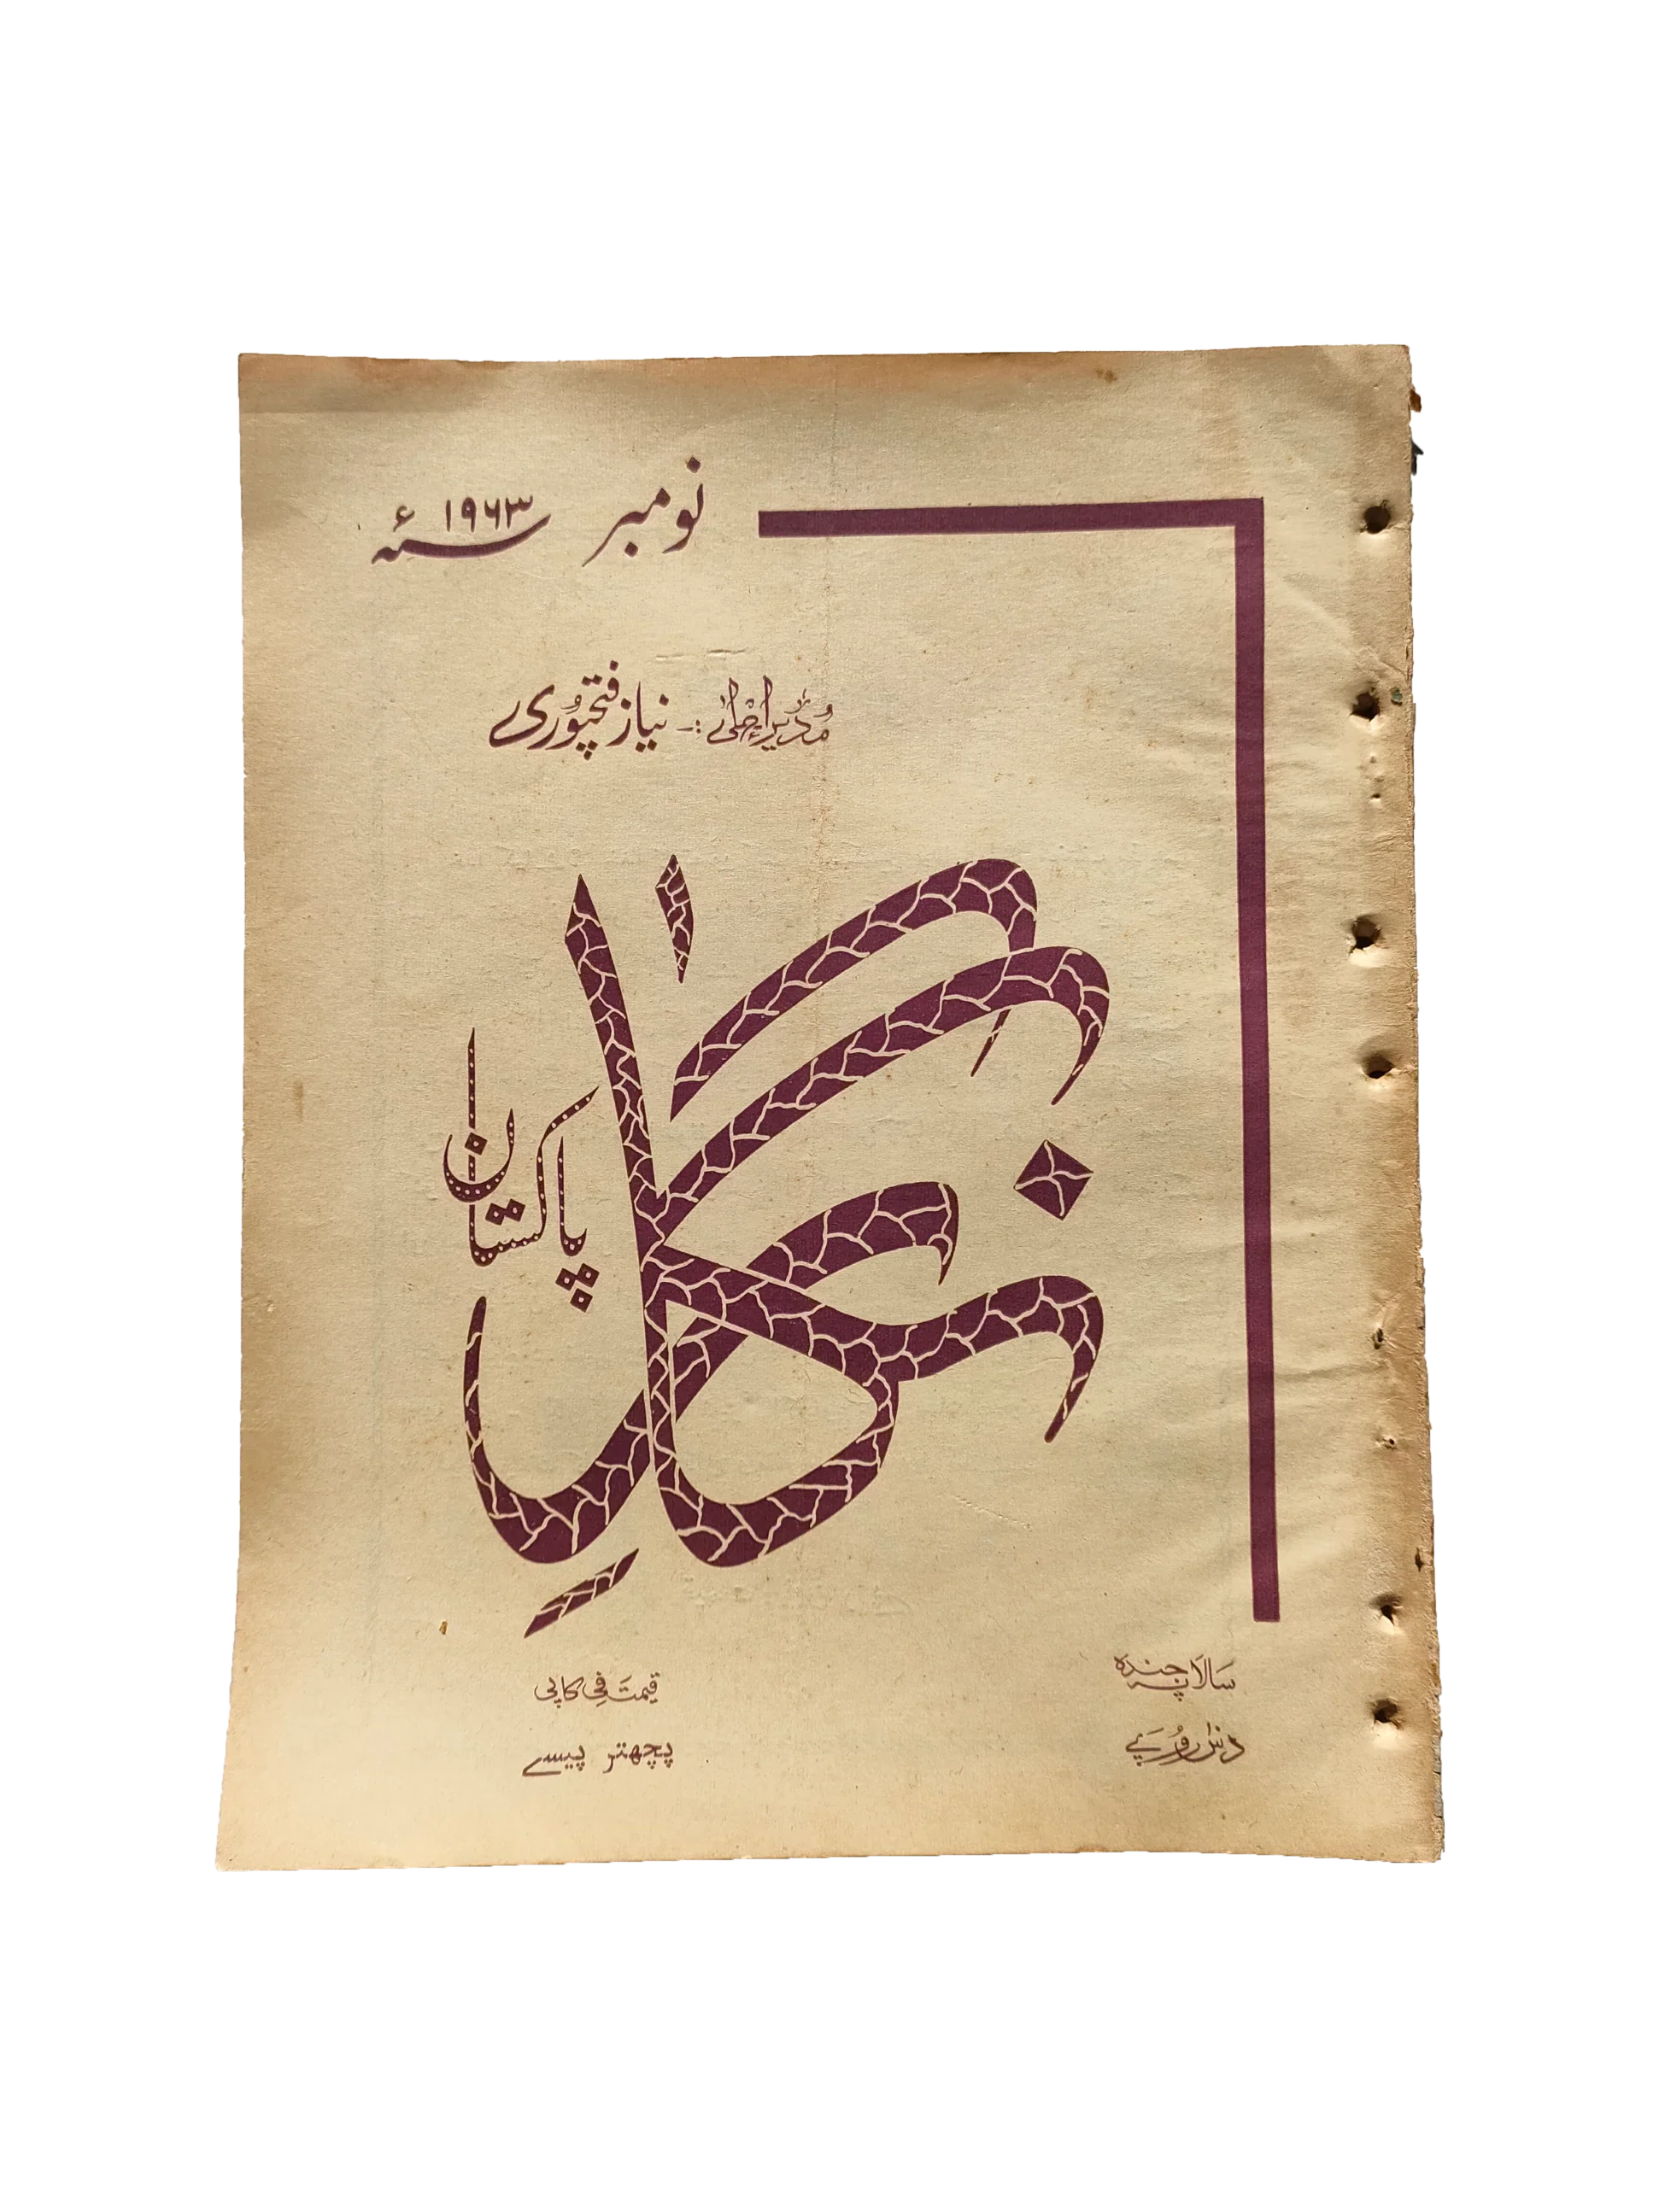 نومبر ۱۹۶۳ء
مدیر اعلیٰ :- نیاز فتحپوری
نگار
پاکستان
سالانہ چندہ
دس روپے
قیمت فی کاپی
پچھتر پیسے